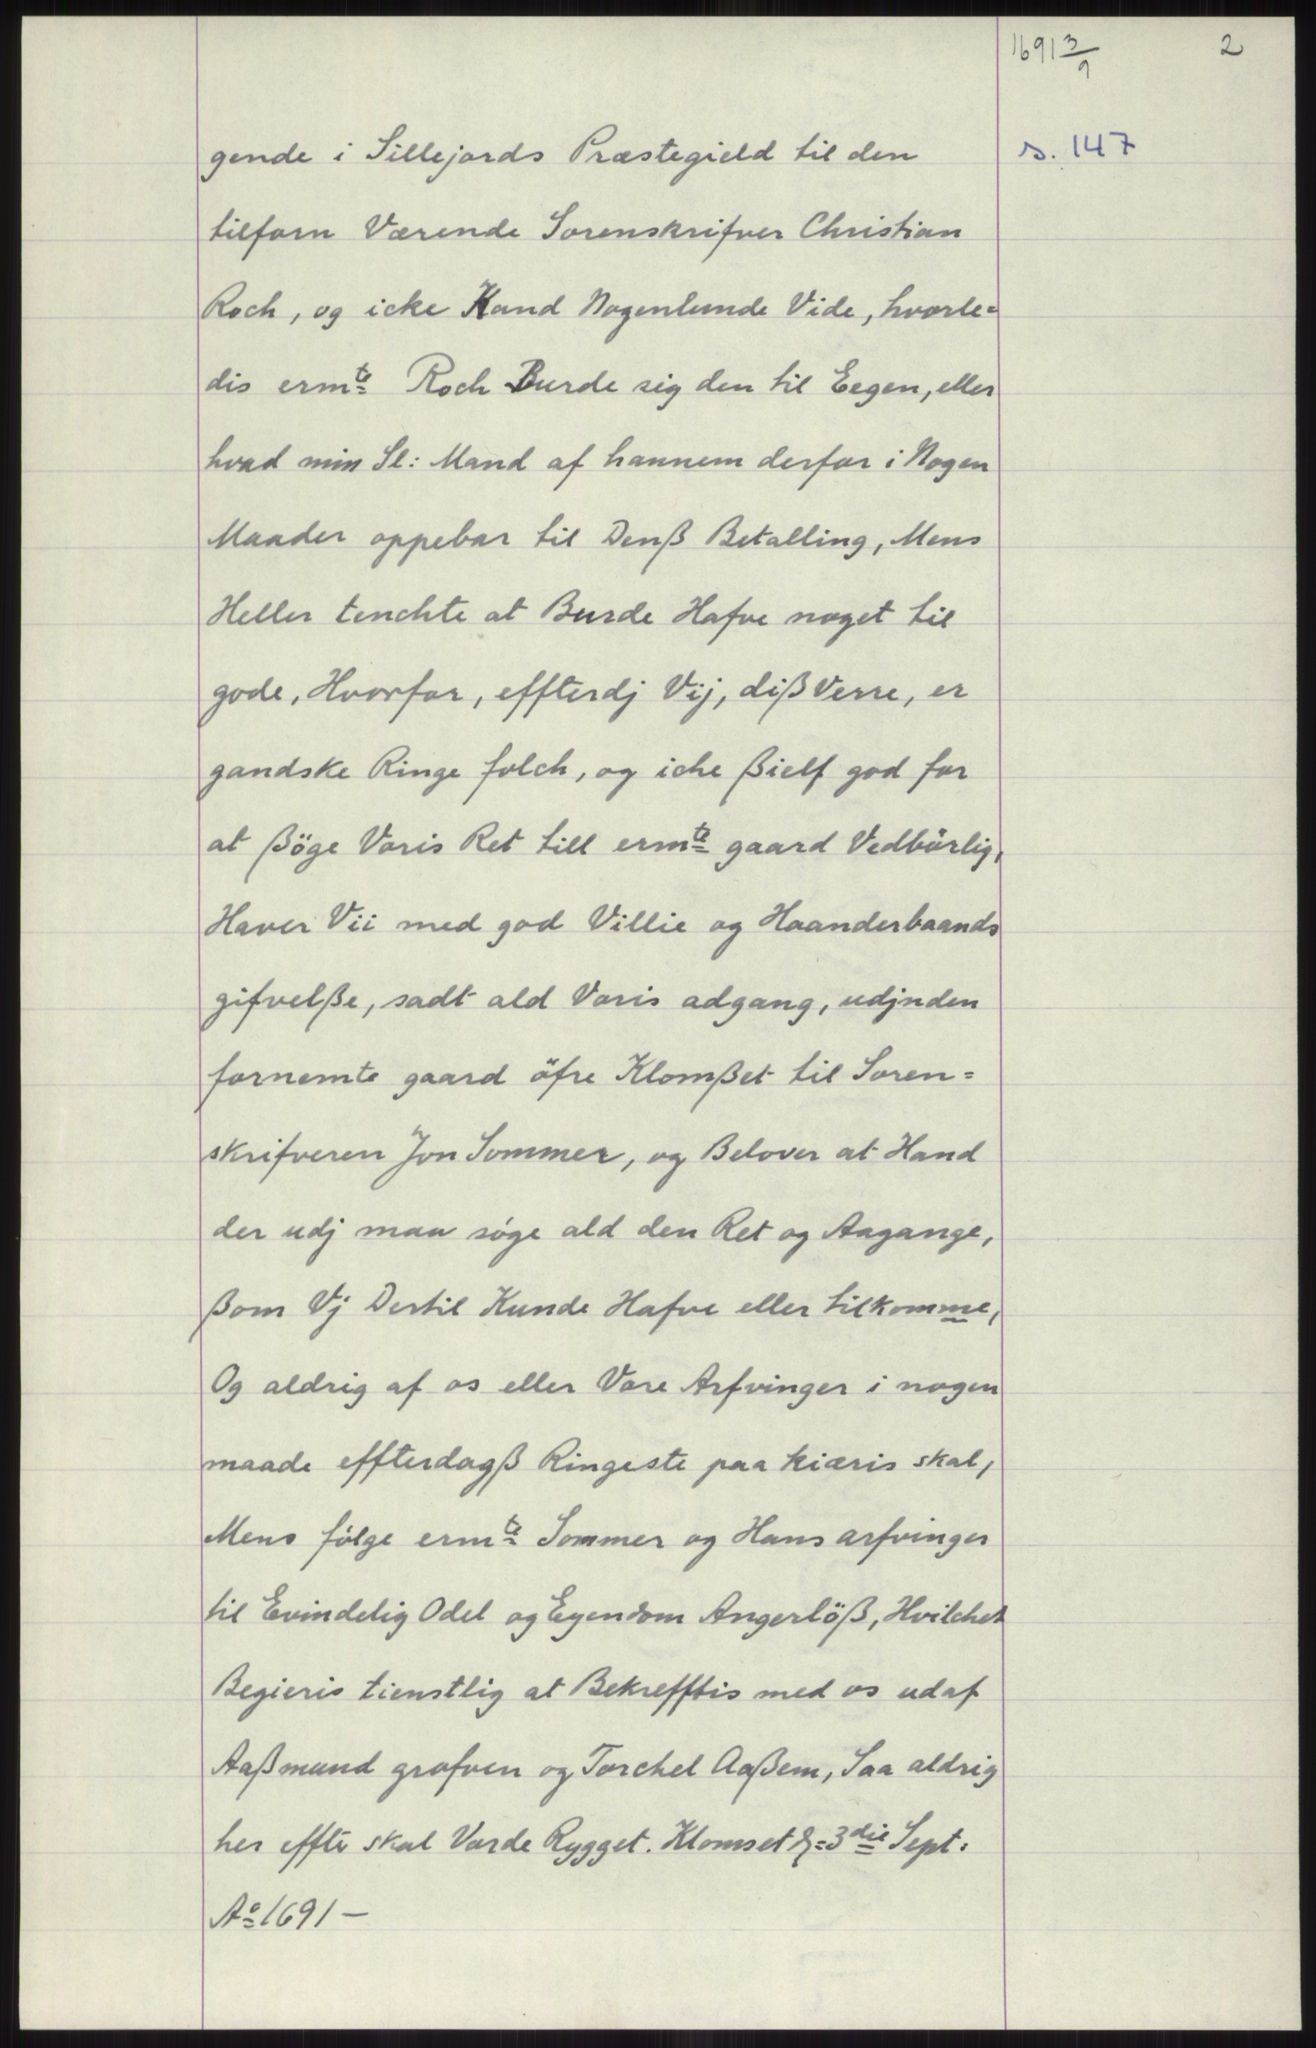 1691 3/9
2
s. 147
gende i Sillejords Præstegield til den
tilforn Værende Sorenskrifver Christian
Roch, og icke Kand Nogenlunde Vide, hvorle=
dis ermte Roch Burde sig den til Eegen, eller
hvad min Sl: Mand af hannem derfor i Nogen
Maader oppebar til Denß Betalling, Mens
Heller tenchte at Burde Hafve noget til
gode, Hvorfor, effterdj Vij, dißverre, er
gandske Ringe folch, og iche ßielf god for
at ßöge Voris Ret till ermte gaard Vedbörlig,
Haver Vii med god Villie og Haanderbaands
gifvelße, sadt ald Voris adgang, udjnden
fornemte gaard öfre Klomßet til Soren=
skrifveren Jon Sommer, og Belover at Hand
der udj maa søge ald den Ret og Aagange,
ßom Vj Dertil Kunde Hafve eller tilkomme,
Og aldrig af os eller Vore Arfvinger i nogen
maade effterdagß Ringeste paa kiæris skal,
Mens følge ermte Sommer og Hans arfvinger
til Evindelig Odel og Eyendom Angerlöß, Hvilchet
Begieris tienstlig at Bekrefftis med os udaf
Aaßmund grafven og Torchel Aaßem, Saa aldrig
her effte skal Vorde Rygget. Klomset d: 3die Sept:
Ao 1691 —